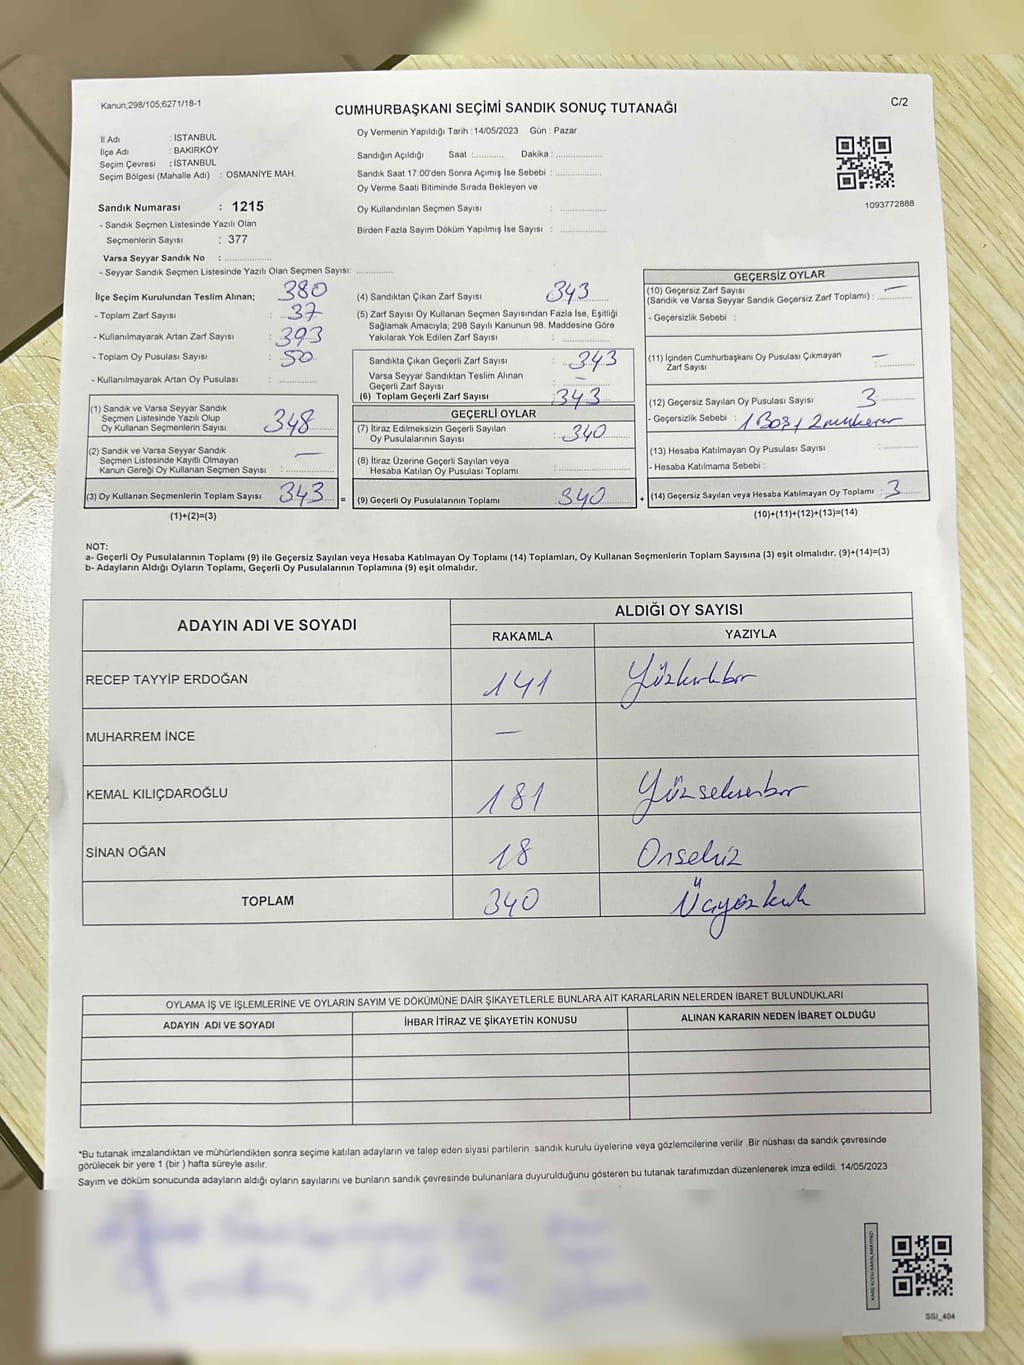 Kanun;298/105;6271/18-1
CUMHURBAŞKANI SEÇİMİ SANDIK SONUÇ TUTANAĞI
C/2
İl Adı : İSTANBUL
İlçe Adı : BAKIRKÖY
Seçim Çevresi : İSTANBUL
Seçim Bölgesi (Mahalle Adı) : OSMANİYE MAH.
Sandık Numarası : 1215
- Sandık Seçmen Listesinde Yazılı Olan
Seçmenlerin Sayısı : 377
Varsa Seyyar Sandık No :
- Seyyar Sandık Seçmen Listesinde Yazılı Olan Seçmen Sayısı:
Oy Vermenin Yapıldığı Tarih : 14/05/2023 Gün : Pazar
Sandığın Açıldığı Saat : Dakika :
Sandık Saat 17:00'den Sonra Açımış İse Sebebi :
Oy Verme Saati Bitiminde Sırada Bekleyen ve
Oy Kullandırılan Seçmen Sayısı :
Birden Fazla Sayım Döküm Yapılmış İse Sayısı :
1093772888
İlçe Seçim Kurulundan Teslim Alınan; 380
- Toplam Zarf Sayısı : 37
- Kullanılmayarak Artan Zarf Sayısı : 393
- Toplam Oy Pusulası Sayısı : 50
- Kullanılmayarak Artan Oy Pusulası :
(1) Sandık ve Varsa Seyyar Sandık
Seçmen Listesinde Yazılı Olup
Oy Kullanan Seçmenlerin Sayısı 348
(2) Sandık ve Varsa Seyyar Sandık
Seçmen Listesinde Kayıtlı Olmayan
Kanun Gereği Oy Kullanan Seçmen Sayısı : —
(3) Oy Kullanan Seçmenlerin Toplam Sayısı 343 =
(1)+(2)=(3)
(4) Sandıktan Çıkan Zarf Sayısı 343
(5) Zarf Sayısı Oy Kullanan Seçmen Sayısından Fazla İse, Eşitliği
Sağlamak Amacıyla; 298 Sayılı Kanunun 98. Maddesine Göre
Yakılarak Yok Edilen Zarf Sayısı :
Sandıkta Çıkan Geçerli Zarf Sayısı : 343
Varsa Seyyar Sandıktan Teslim Alınan
Geçerli Zarf Sayısı : —
(6) Toplam Geçerli Zarf Sayısı : 343
GEÇERLİ OYLAR
(7) İtiraz Edilmeksizin Geçerli Sayılan
Oy Pusulalarının Sayısı : 340
(8) İtiraz Üzerine Geçerli Sayılan veya
Hesaba Katılan Oy Pusulası Toplamı :
(9) Geçerli Oy Pusulalarının Toplamı 340 +
GEÇERSİZ OYLAR
(10) Geçersiz Zarf Sayısı —
(Sandık ve Varsa Seyyar Sandık Geçersiz Zarf Toplamı) :
- Geçersizlik Sebebi :
(11) İçinden Cumhurbaşkanı Oy Pusulası Çıkmayan
Zarf Sayısı : —
(12) Geçersiz Sayılan Oy Pusulası Sayısı : 3
- Geçersizlik Sebebi : 1 Boş, 2 mükerrer
(13) Hesaba Katılmayan Oy Pusulası Sayısı :
- Hesaba Katılmama Sebebi :
(14) Geçersiz Sayılan veya Hesaba Katılmayan Oy Toplamı : 3
(10)+(11)+(12)+(13)=(14)
NOT:
a- Geçerli Oy Pusulalarının Toplamı (9) ile Geçersiz Sayılan veya Hesaba Katılmayan Oy Toplamı (14) Toplamları, Oy Kullanan Seçmenlerin Toplam Sayısına (3) eşit olmalıdır. (9)+(14)=(3)
b- Adayların Aldığı Oyların Toplamı, Geçerli Oy Pusulalarının Toplamına (9) eşit olmalıdır.
ADAYIN ADI VE SOYADI
ALDIĞI OY SAYISI
RAKAMLA YAZIYLA
RECEP TAYYİP ERDOĞAN 141 Yüzkırkbir
MUHARREM İNCE —
KEMAL KILIÇDAROĞLU 181 Yüzseksenbir
SİNAN OĞAN 18 Onsekiz
TOPLAM 340 Üçyüzkırk
OYLAMA İŞ VE İŞLEMLERİNE VE OYLARIN SAYIM VE DÖKÜMÜNE DAİR ŞİKAYETLERLE BUNLARA AİT KARARLARIN NELERDEN İBARET BULUNDUKLARI
ADAYIN ADI VE SOYADI İHBAR İTİRAZ VE ŞİKAYETİN KONUSU ALINAN KARARIN NEDEN İBARET OLDUĞU
*Bu tutanak imzalandıktan ve mühürlendikten sonra seçime katılan adayların ve talep eden siyasi partilerin sandık kurulu üyelerine veya gözlemcilerine verilir .Bir nüshası da sandık çevresinde
görülecek bir yere 1 (bir ) hafta süreyle asılır.
Sayım ve döküm sonucunda adayların aldığı oyların sayılarını ve bunların sandık çevresinde bulunanlara duyurulduğunu gösteren bu tutanak tarafımızdan düzenlenerek imza edildi. 14/05/2023
KARE KODU KARALAMAYINIZ!
SSI_404